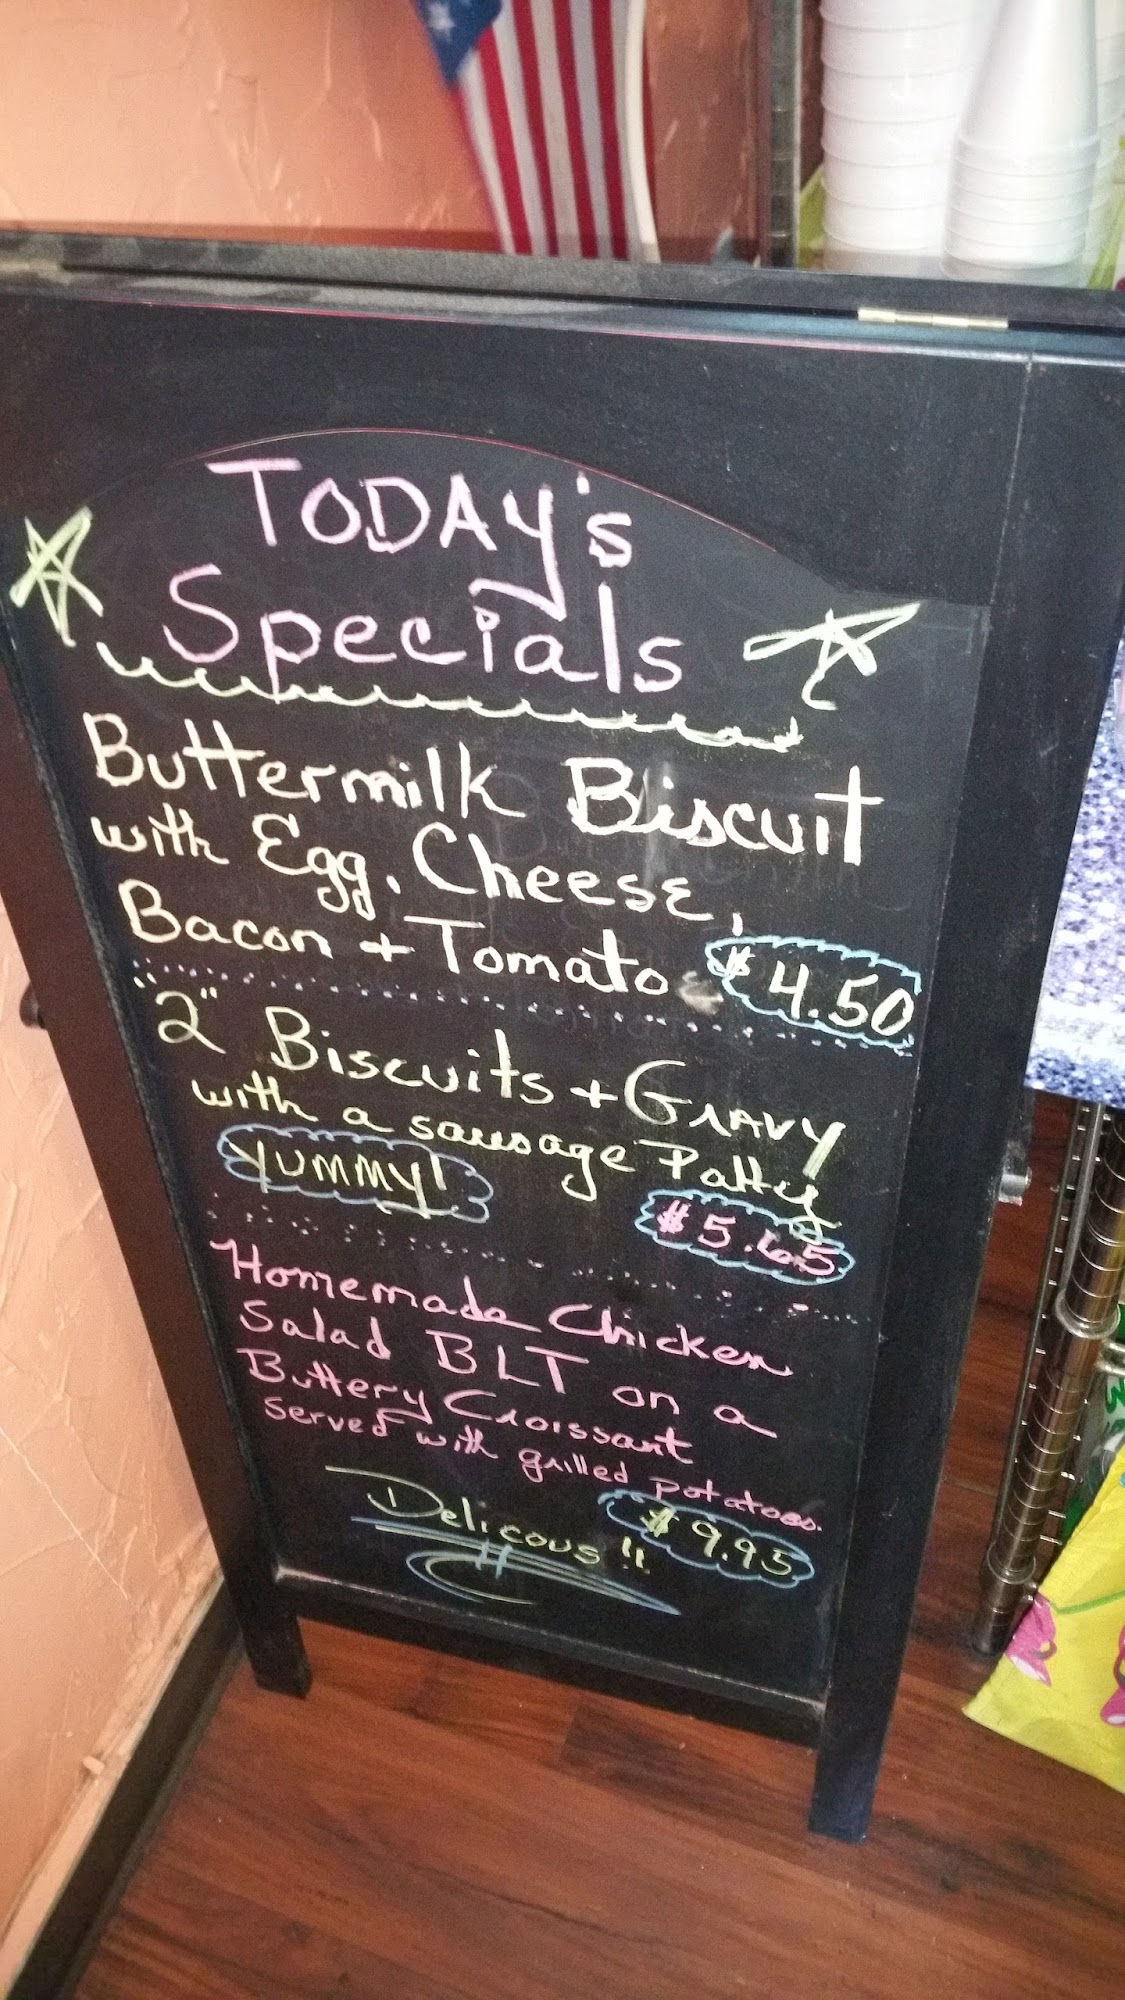 TODAY's
Specials
Buttermilk Biscuit
with Egg, Cheese,
Bacon + Tomato $4.50
"2" Biscuits + GRAVY
with a sausage Patty
YUMMY! $5.65
Homemade Chicken
Salad BLT on a
Buttery Croissant
served with grilled potatoes.
Delicous!! $9.95